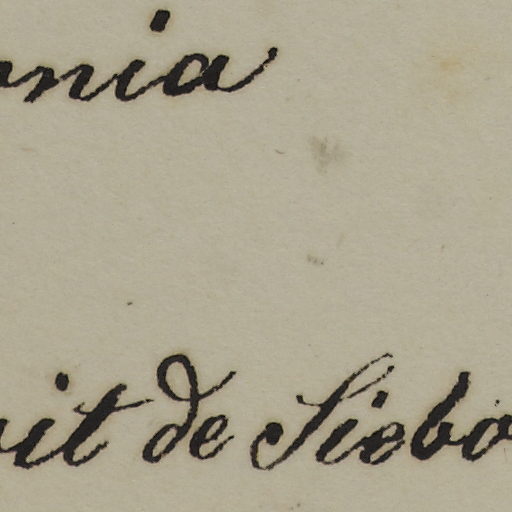 nia
it de Siebo